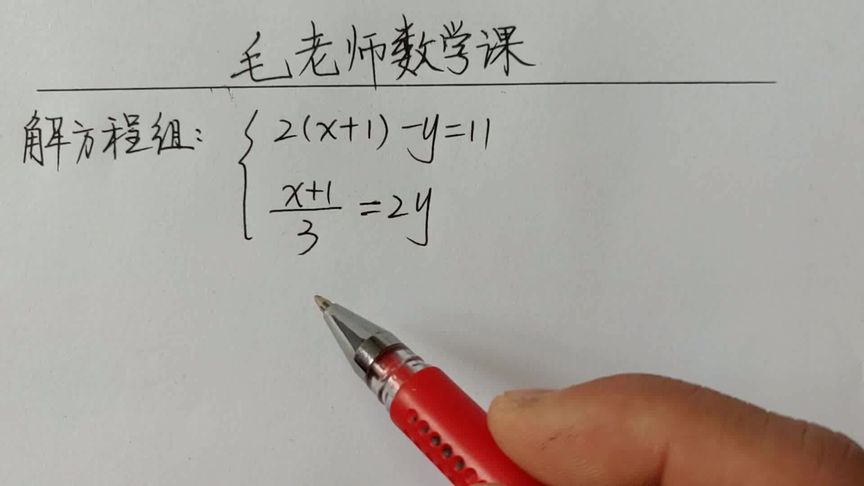 毛老师数学课
解方程组: { 2(x+1)-y=11
x+1/3=2y